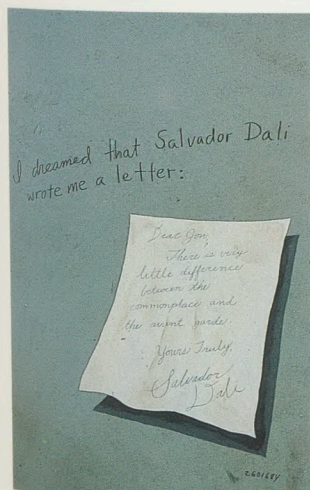 I dreamed that Salvador Dali
wrote me a letter:
Dear Jon,
There is very
little difference
between the
commonplace and
the avant garde.
Yours Truly,
Salvador
Dali